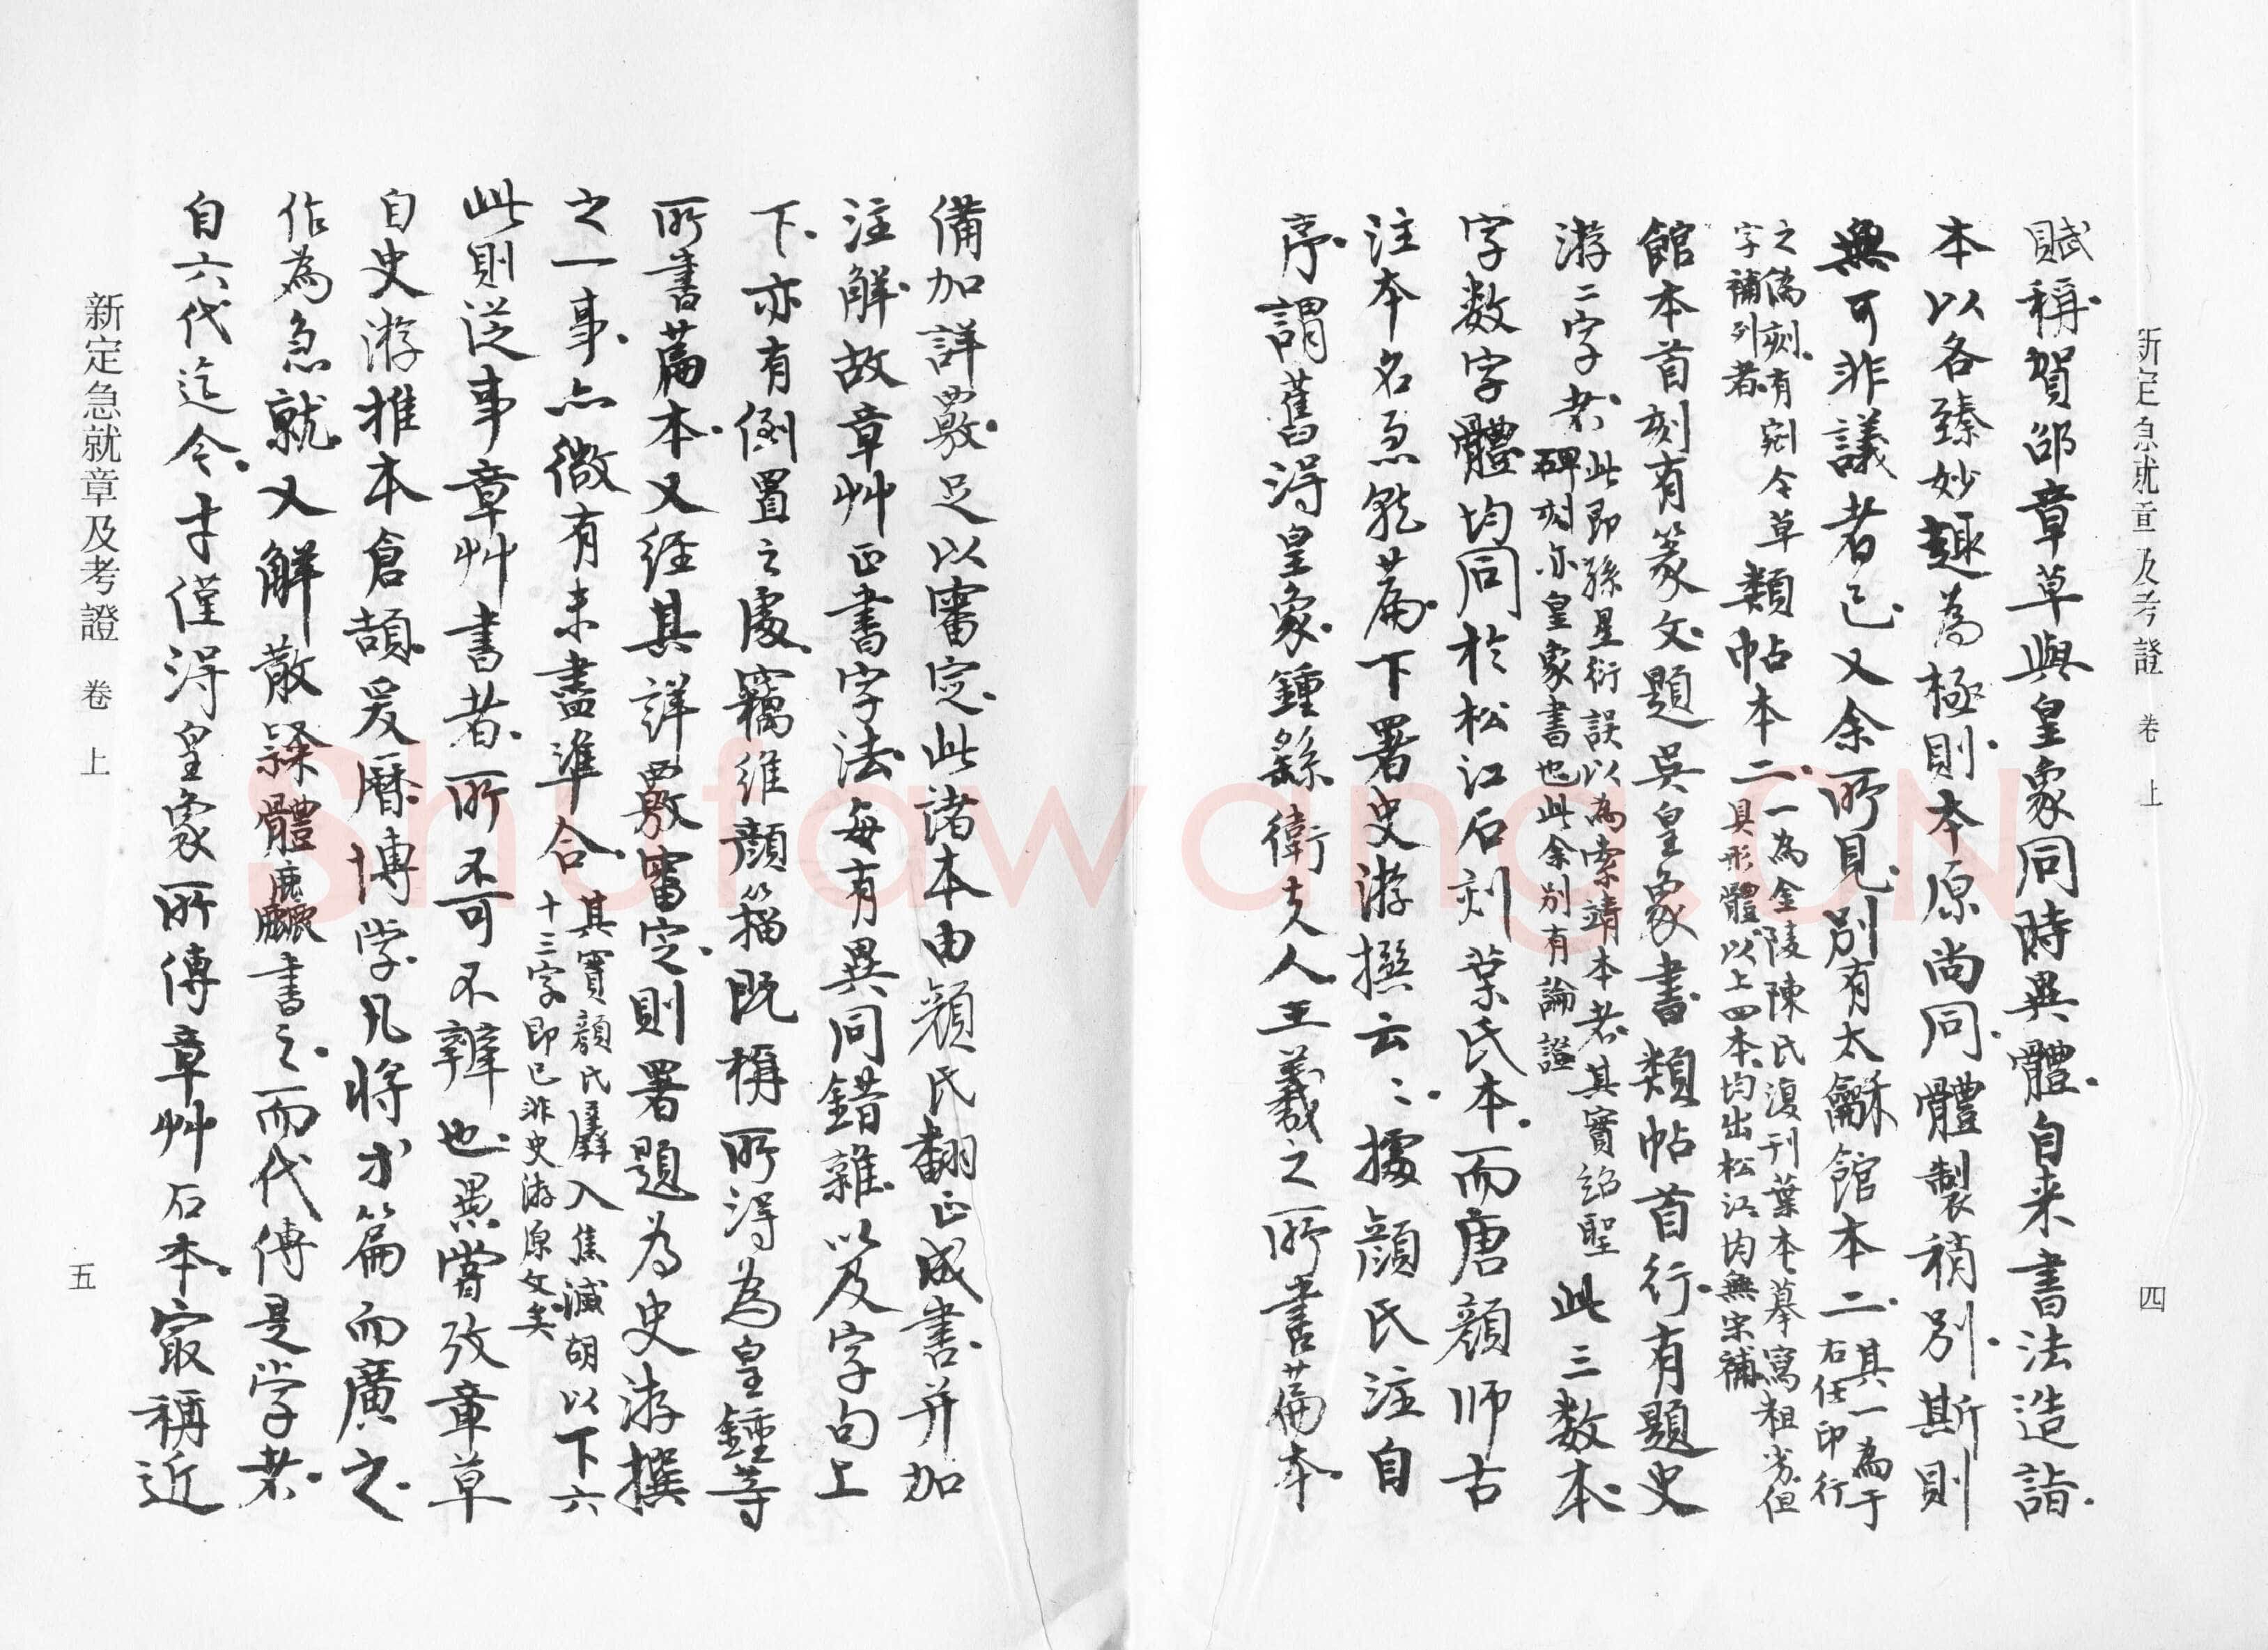 新定急就章及考證 卷上 四
賦稱賀邵章草與皇象同時異體自来書法造詣
本以各臻妙趣為極則本原尚同體製稍別斯則
無可非議者已又余所見別有太龢館本二其一為于右任印行
之偽刻有剜今草字補列者類帖本二一為金陵陳氏復刊葉本摹寫粗劣但具形體以上四本均出松江均無宋補
館本首刻有篆文題吳皇象書類帖首行有題史
游二字者此即孫星衍誤以為索靖本者其實紹聖碑刻亦皇象書也此余別有論證此三数本
字数字體均同於松江石刻葉氏本而唐顔师古
注本名急就篇下署史游撰云〻據顔氏注自
序謂舊得皇象鍾繇衛夫人王羲之所書篇本
備加詳覈足以審定此諸本由顔氏翻正成書并加
注解故章艸正書字法每有異同錯雜以及字句上
下亦有倒置之處竊維顔籀既稱所得為皇鍾等
所書篇本又经其詳覈審定則署題為史游撰
之一事亦微有未盡準合其實顔氏羼入焦滅胡以下六十三字即已非史游原文矣
此則泛事章艸書者所不可不辨也愚嘗攷章草
自史游推本倉頡爰曆博学凡将才篇而廣之
作為急就又解散隸體麤書之而代傳是学者
自六代迄今才僅得皇象所傳章艸石本冣稱近
新定急就章及考證 卷上 五
Shufawang.CN